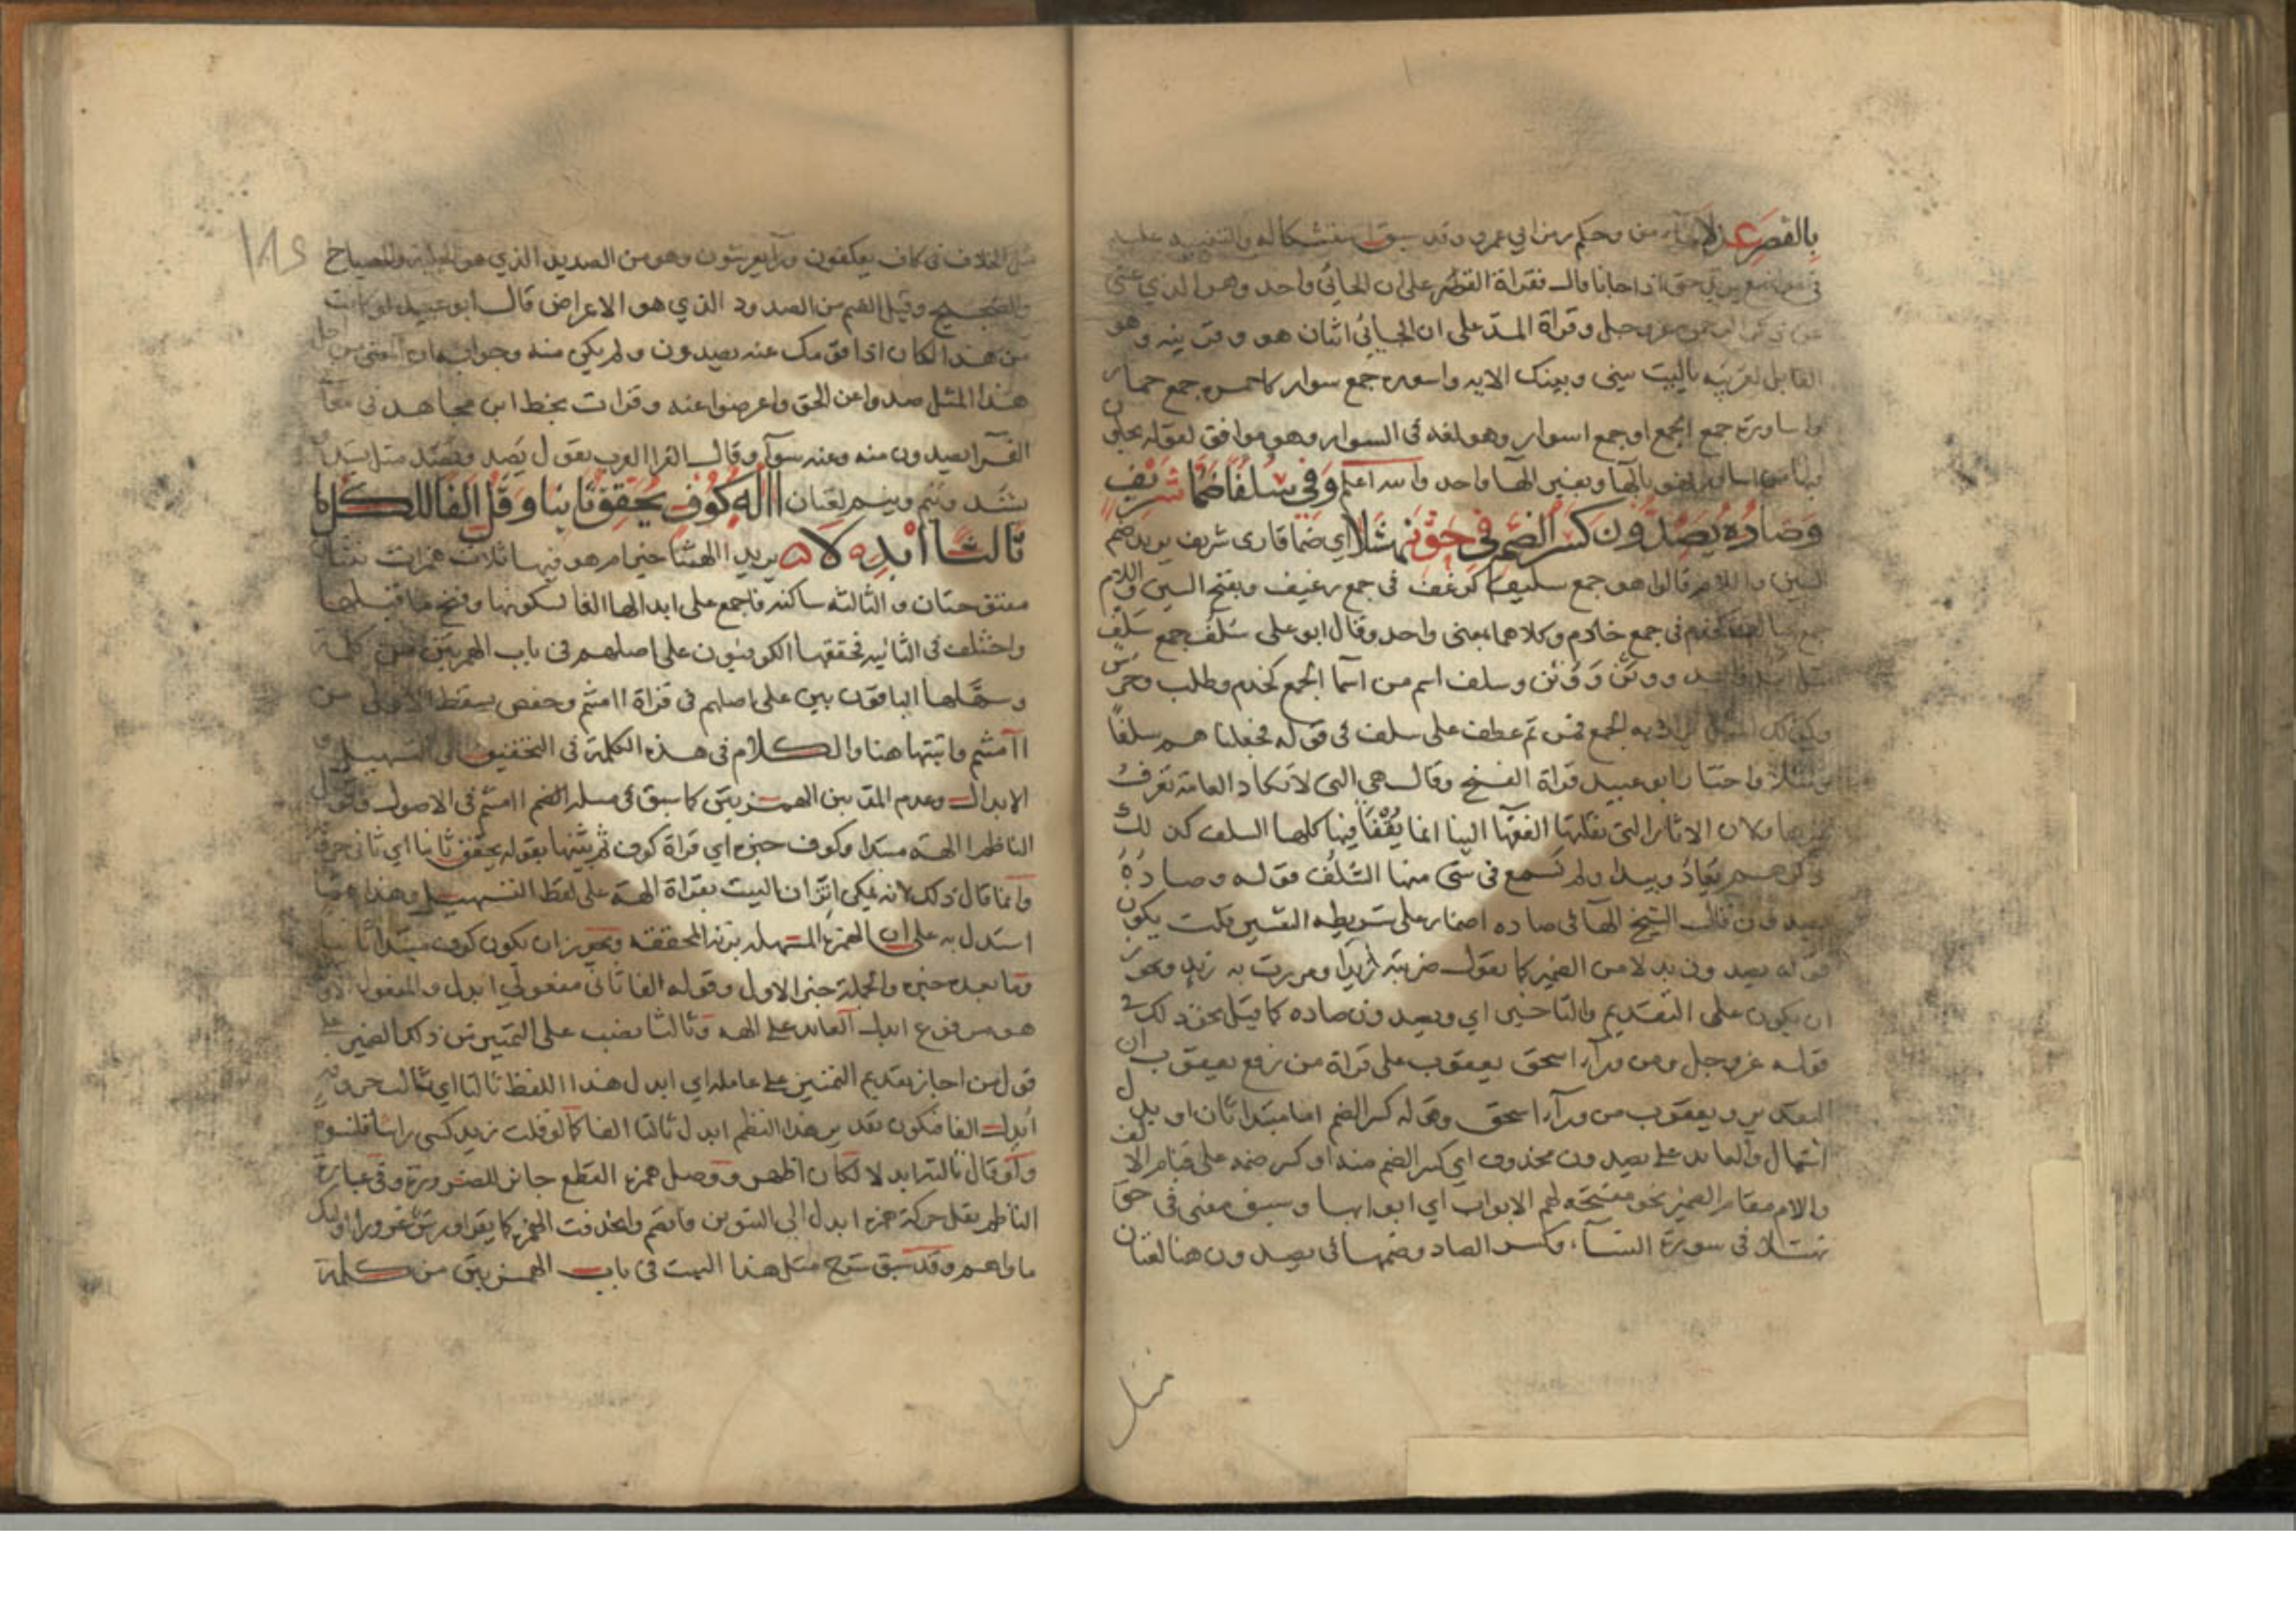 بالقصر عدلا من وحكم رمز ابي عمرو وقد سبق استشكاله والتنبيه عليه
حتى اذا جانا قال فقراة القصر على ان الجائي واحد وهو الذي عشى
عن ذكر الرحمن عز وجل وقراة المد على ان الجائي اثنان هو وقرينه وهو
القايل لقرينه ياليت بيني وبينك الايه واسوره جمع سوار كاحمره جمع حمار
واساورة جمع الجمع او جمع اسوار وهو لغه في السوار وهو موافق لقوله يحلون
فيها من اساور بالها وبغير الها واحد والله اعلم وَفي سُلُفًا ضَمَّا شَرِيفٍ
وَصَادُهُ يَصُدُّونَ كَسْرُ الضَّمِّ في حَقِّ نَهْشَلَا اي ضما قارى شريف يريد ضم
السين واللام قالوا هو جمع سليف كرغف في جمع رغيف وبفتح السين واللام
جمع سالف كخدم في جمع خادم وكلاهما بمعنى واحد وقال ابو على سُلُف جمع سَلَف
مثل اسد واسد ووثن ووُثن وسلف اسم من اسما الجمع كخدم وطلب وحرس
وكذلك المثل يراد به الجمع فمن ثم عطف على سلف في قوله فجعلناهم سلفا
ومثلا واختار ابو عبيد قراة الفتح وقال هي التي لا تكاد العامة تعرف
غيرها ولان الاثار التي نقلتها الفقها الينا انما فيها كلها السلف كذلك
ذكرهم يعاد ويبدا ولم نسمع في شى منها السُّلُف قوله وصادُهُ
يصدون قال الشيخ الها في صاده اضمار على شريطه التفسير قلت يكون
قوله يصدون بدلا من الضمير كما تقول ضربته زيدا ومررت به زيد ويجوز
ان يكون على التقديم والتاخير اي ويصدون صاده كما قيل نحو ذلك في
قوله عز وجل ومن ورآء اسحق يعقوب على قراة من رفع يعقوب ان
التقدير ويعقوب من ورآء اسحق وقوله كسر الضم اما مبتدا ثان او بدل
اشتمال والعايد على يصدون محذوف اي كسر الضم منه او كسر ضمه على قيام الالف
واللام مقام الضمير نحو مفتحة لهم الابواب اي ابوابها وسبق معنى في حق
نهشلا في سورة النسآء وكسر الصاد وضمها في يصدون هنا لغتان
مثل
مثل الخلاف في كاف يعكفون ورآ يعرشون وهو من الصديد الذي هو الجلبة والصياح
والضجيج وقيل الضم من الصدود الذي هو الاعراض قال ابو عبيد لو كانت
من هذا لكان اذا قومك عنه يصدون ولم يكن منه وجوابه ان المعنى من اجل
هذا المثل صدوا عن الحق واعرضوا عنه وقرات بخط ابن مجاهد في معاني
القرآ يصدون منه وعنه سوآء وقال الفرا العرب تقول يَصِد ويَصُد مثل يشِد
يشُد وينِم وينُم لغتان اَالِهَةٌ كُوفٍ يُحَقِّقُ ثَانِيًا وَقُلْ اَلِفًا لِلكُلِّ
ثَالِثًا اُبْدِلَا يريد االهتنا خير ام هو فيها ثلاث همزات ثنتان
مفتوحتان والثالثه ساكنه فاجمع على ابدالها الفا لسكونها وفتح ما قبلها
واختلف في الثانيه فحققها الكوفيون على اصلهم في باب الهمزتين من كلمة
وسهلها الباقون بين بين على اصلهم في قراة اامنتم وحفص يسقط الاولى من
اآمنتم واثبتها هنا والكلام في هذه الكلمة في التخفيف في التسهيل و
الابدال وعدم المد بين الهمزتين كما سبق في مسله اامنتم في الاصول وقول
الناظم االهة مبتدا وكوف خبره اي قراة كوف ثم بينها بقوله يحقق ثانيا اي ثاني حروفه
وانما قال ذلك لانه يمكن اتزان البيت بقراة االهة على لفظ التسهيل وهذا مما
استدل به على ان الهمزة المسهله بزنة المحققه ويجوز ان يكون كوف مبتدا ثانيا
وما بعده خبره والجملة خبر الاول وقوله الفا ثاني مفعولي ابدل والمفعول الاول
هو مرفوع ابدل العايد على االهه وثالثا نصب على التمييز من ذلك الضمير على
قول من اجاز تقديم التمييز على عامله اي ابدل هذا اللفظ ثالثا اي ثالث حروفه
اُبدل الفا فيكون تقدير هذا النظم ابدل ثالثا الفا كما لو قلت زيد كسى راسا قلنسوة
ولو قال ثالثه ابدلا لكان اظهر ووصل همزة القطع جايز للضرورة وفي عبارة
الناظم نقل حركة همزة ابدل الى التنوين فانضم وانحذفت الهمزة كما يقرا ورش غفورا اوليك
ماواهم وقد سبق شرح مثل هذا البيت في باب الهمزتين من كلمة